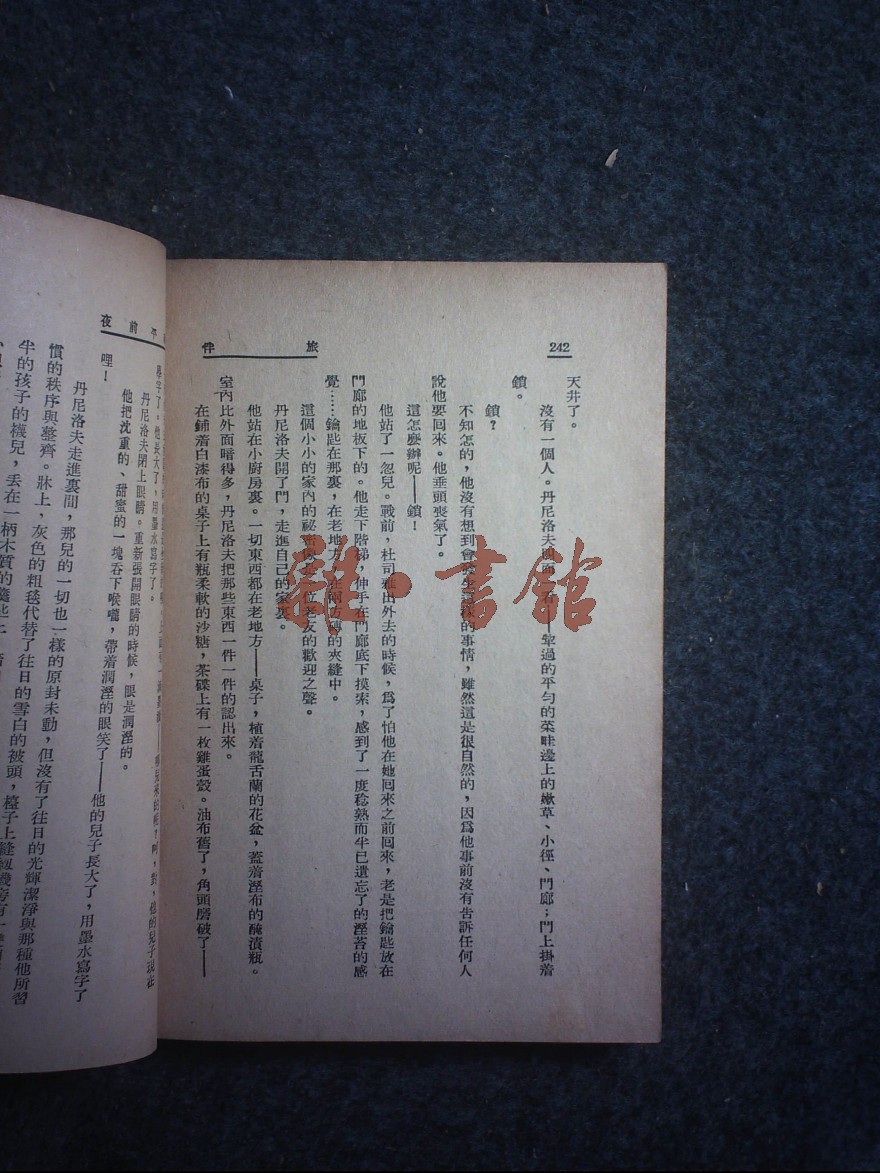 242
旅伴
天井了。
沒有一個人。丹尼洛夫 過的平勻的菜畦邊上的嫩草、小徑、門廊;門上掛着
鎖。
鎖?
不知怎的,他沒有想到會 樣的事情,雖然這是很自然的,因爲他事前沒有告訴任何人
說他要回來。他垂頭喪氣了。
這怎麽辦呢——鎖!
他站了一忽兒。戰前,杜司雅出外去的時候,爲了怕他在她回來之前回來,老是把鑰匙放在
門廊的地板下的。他走下階梯,伸手在門廊底下摸索,感到了一度稔熟而半已遺忘了的溼苔的感
覺……鑰匙在那裏,在老地方,在兩方磚的夾縫中。
這個小小的家內的祕密像 位老友的歡迎之聲。
丹尼洛夫開了門,走進自己的家裏。
他站在小廚房裏。一切東西都在老地方——桌子,植着龍舌蘭的花盆,蓋着溼布的醃漬瓶。
室內比外面暗得多,丹尼洛夫把那些東西一件一件的認出來。
在鋪着白漆布的桌子上有瓶柔軟的沙糖,茶碟上有一枚雞蛋殼。油布舊了,角頭磨破了——
雜·書館
平前夜
學字了。他長大了,用墨水寫字了。
丹尼洛夫閉上眼睛。重新張開眼睛的時候,眼是潤溼的。
他把沈重的、甜蜜的一塊吞下喉嚨,帶着潤溼的眼笑了——他的兒子長大了,用墨水寫字了
哩!
丹尼洛夫走進裏間,那兒的一切也一樣的原封未動,但沒有了往日的光輝潔淨與那種他所習
慣的秩序與整齊。牀上,灰色的粗毯代替了往日的雪白的被頭,檯子上縫紉機旁有一
半的孩子的襪兒,丢在一柄木質的